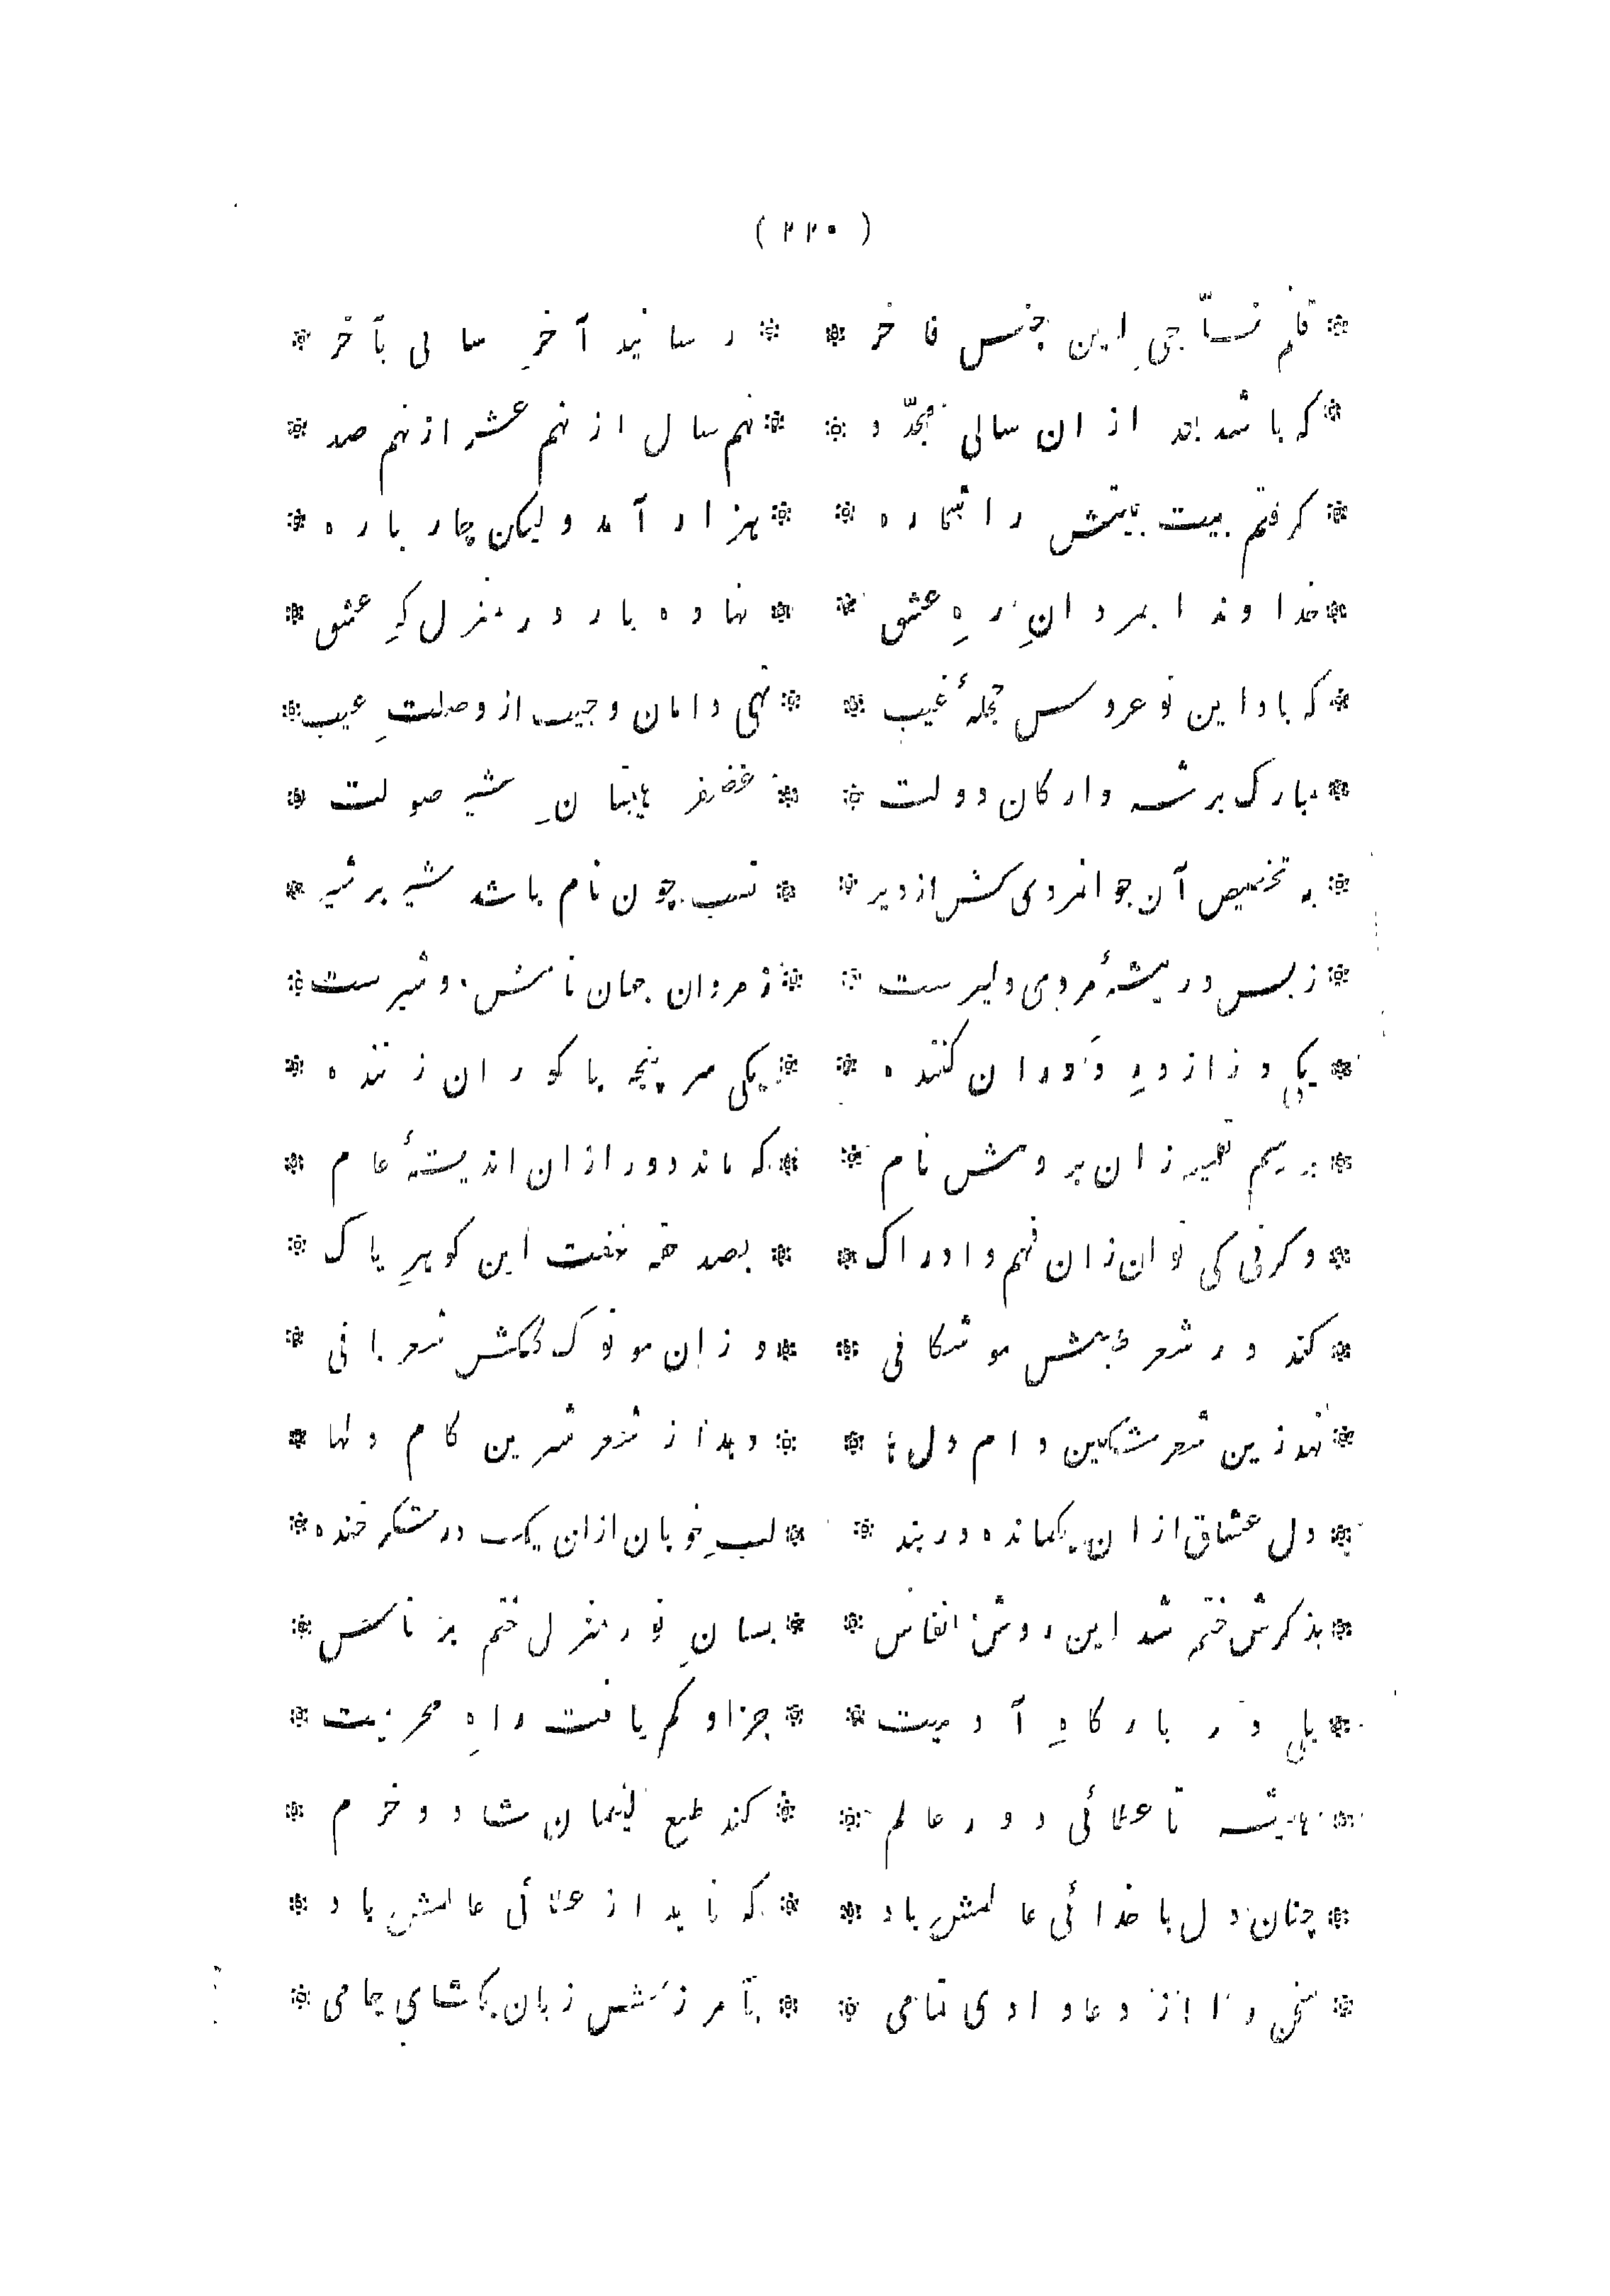 ( ۲۲۰ )
* قلم نسّاجیِ این جنس فاخر * * رسانید آخرِ سالی بآخر *
* که باشد بعد از ان سالی مجدّد * * نهم سال از نهم عشر از نهم صد *
* کرفتم بیت بیتش را شماره * * هزار آمد ولیکن چار باره *
* خداوندا بمردانِ رهِ عشق * * نهاده بار در منزل کهِ عشق *
* که باد این نو عروس حجلهٔ غیب * * تهی دامان و جیب از وصلتِ عیب *
* مبارک بر شه و ارکان دولت * * غضنفر هیبتانِ شیر صولت *
* به تخصیص آن جوانمردی کش از دیر * * نسب چون نام باشد شیر بر شیر *
* ز بس در بیشهٔ مردی دلیرست * * ز مردان جهان نامش دو شیرست *
* یکی دز از درِ دَوران کننده * * یکی سر پنجه با کوران زننده *
* برسم تعمیه زان بردمش نام * * که ماند دور از ان اندیشهٔ عام *
* و کرنی کی توان زان فهم و ادراک * * بصد حقه نهفت این کوهرِ پاک *
* کند در شعر طبعش موشکافی * * وزان مو نوک کلکش شعربافی *
* نهد زین شعر مشکین دام دلها * * دهد از شعر شیرین کام دلها *
* دل عشاق از ان یک مانده در بند * * لبِ خوبان از ان یک در شکر خنده *
* بذکرش ختم شد این روشن انفاس * * بسانِ نور منزل ختم بر ناس *
* بلی در بارکاهِ آدمیت * * جز او کم یافت راهِ محرمیت *
* همیشه تا عطائی دور عالم * * کند طبع لئیمان شاد و خرم *
* چنان دل با خدائی عالمش باد * * که ناید از عطائی عالمش یاد *
* سخن را از دعا دادی تمامی * * بآمرزش زبان بکشای جامی *